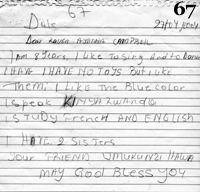 67
67
Date 27/04/2004
Dear
CAMPBELL
I am 8 years, I like To sing And to Dance
I HAVE I HAVE NO TOYS but I like
Them, I like The Blue color
I speak KINYARWANDA
I study French AND ENGLISH
I HAVE 2 SISTERS
your FRIEND UMUKUNZI
MAY GOD BLESS YOU